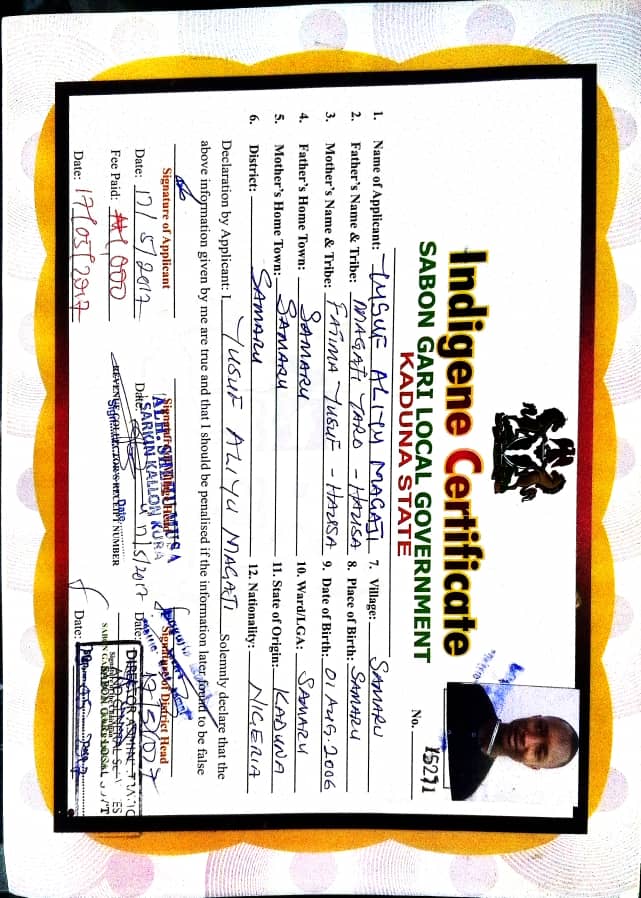 Indigene Certificate
SABON GARI LOCAL GOVERNMENT
KADUNA STATE
No. 15271
1. Name of Applicant: YUSUF ALIYU MAGAJI 7. Village: SAMARU
2. Father's Name & Tribe: MAGAJI YARO - HAUSA 8. Place of Birth: SAMARU
3. Mother's Name & Tribe: FATIMA YUSUF - HAUSA 9. Date of Birth: 01 AUG. 2006
4. Father's Home Town: SAMARU 10. Ward/LGA: SAMARU
5. Mother's Home Town: SAMARU 11. State of Origin: KADUNA
6. District: SAMARU 12. Nationality: NIGERIA
Declaration by Applicant: I YUSUF ALIYU MAGAJI Solemnly declare that the
above information given by me are true and that I should be penalised if the information later found to be false
Signature of Applicant
Signature of District Head
MUSA
SARKIN KALLON KURA
Date: 17/5/2017
Date: 17/5/2017
Date:
DIRECTOR
Fee Paid: ₦1,000
REVENUE COLLECTOR'S RECEIPT NUMBER
Date: 17/05/2017
Date: